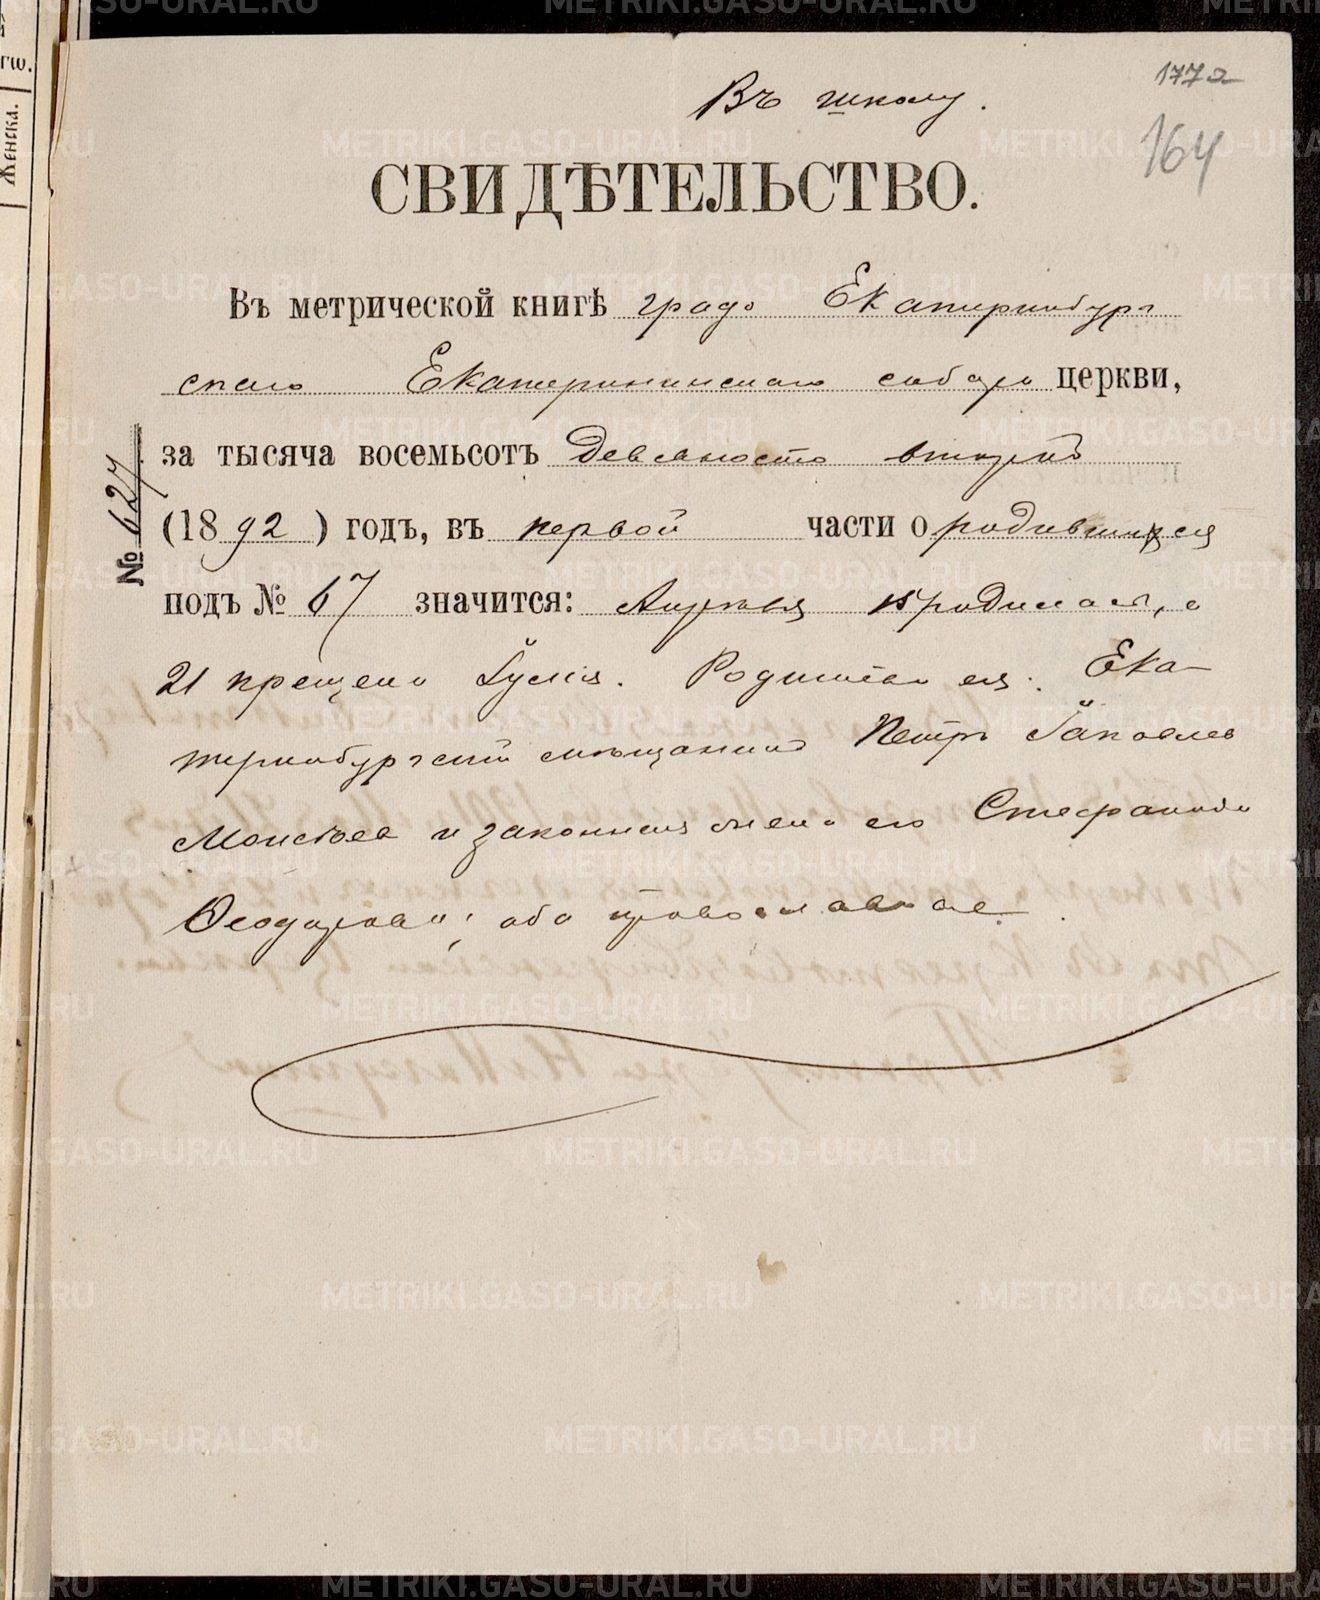 гѡ.
Женска.
177а
Въ школу.
164
СВИДѢТЕЛЬСТВО.
Въ метрической книгѣ градо Екатеринбург
скаго Екатерининскаго собора церкви,
за тысяча восемьсотъ девяносто второй
(1892) годъ, въ первой части о родившихся
№ 627
подъ № 67 значится: Апрѣля 15 родилась, а
21 крещена Iулія. Родители ея: Ека-
теринбургскій мѣщанинъ Петръ Iаковлевъ
и законная жена его Стефанида
Ѳеодорова; оба православные
METRIKI.GASO-URAL.RU